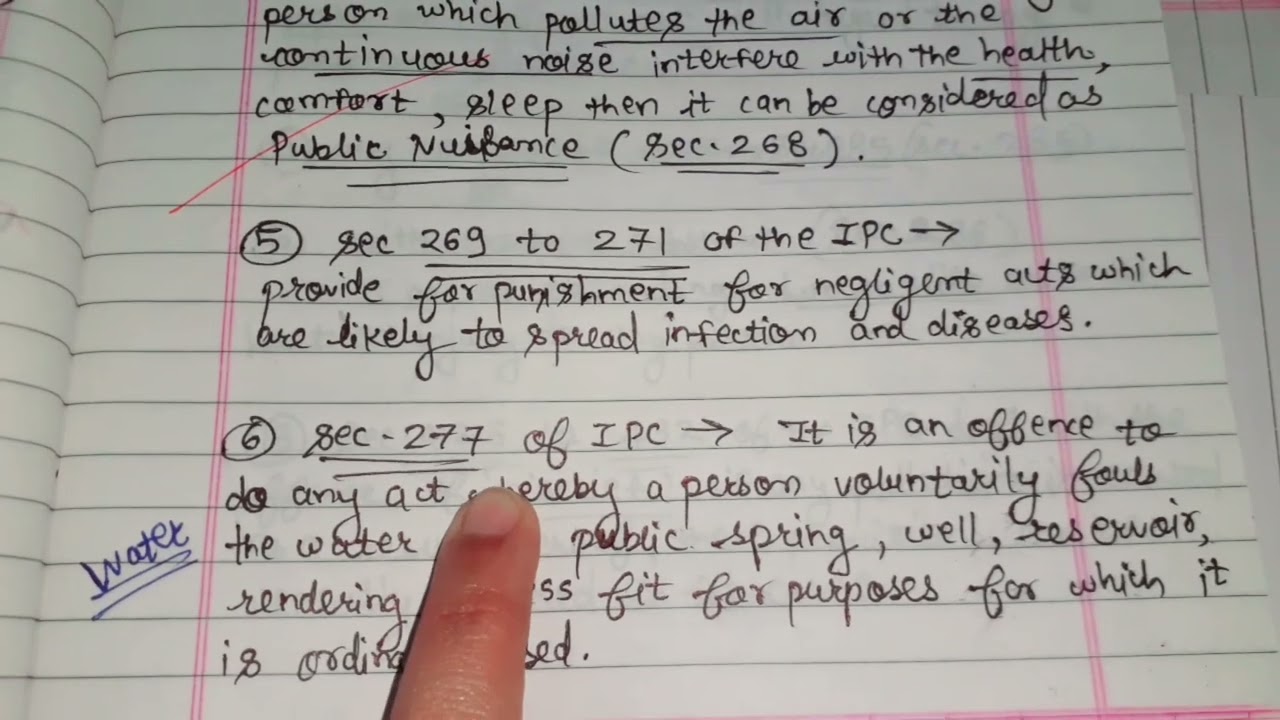 person which pollutes the air or the
continuous noise interfere with the health,
comfort, sleep then it can be considered as
Public Nuisance (Sec. 268).
⑤ Sec 269 to 271 of the IPC →
provide for punishment for negligent acts which
are likely to spread infection and diseases.
⑥ Sec - 277 of IPC → It is an offence to
do any act whereby a person voluntarily fouls
Water
the water public spring, well, reservoir,
rendering fit for purposes for which it
is